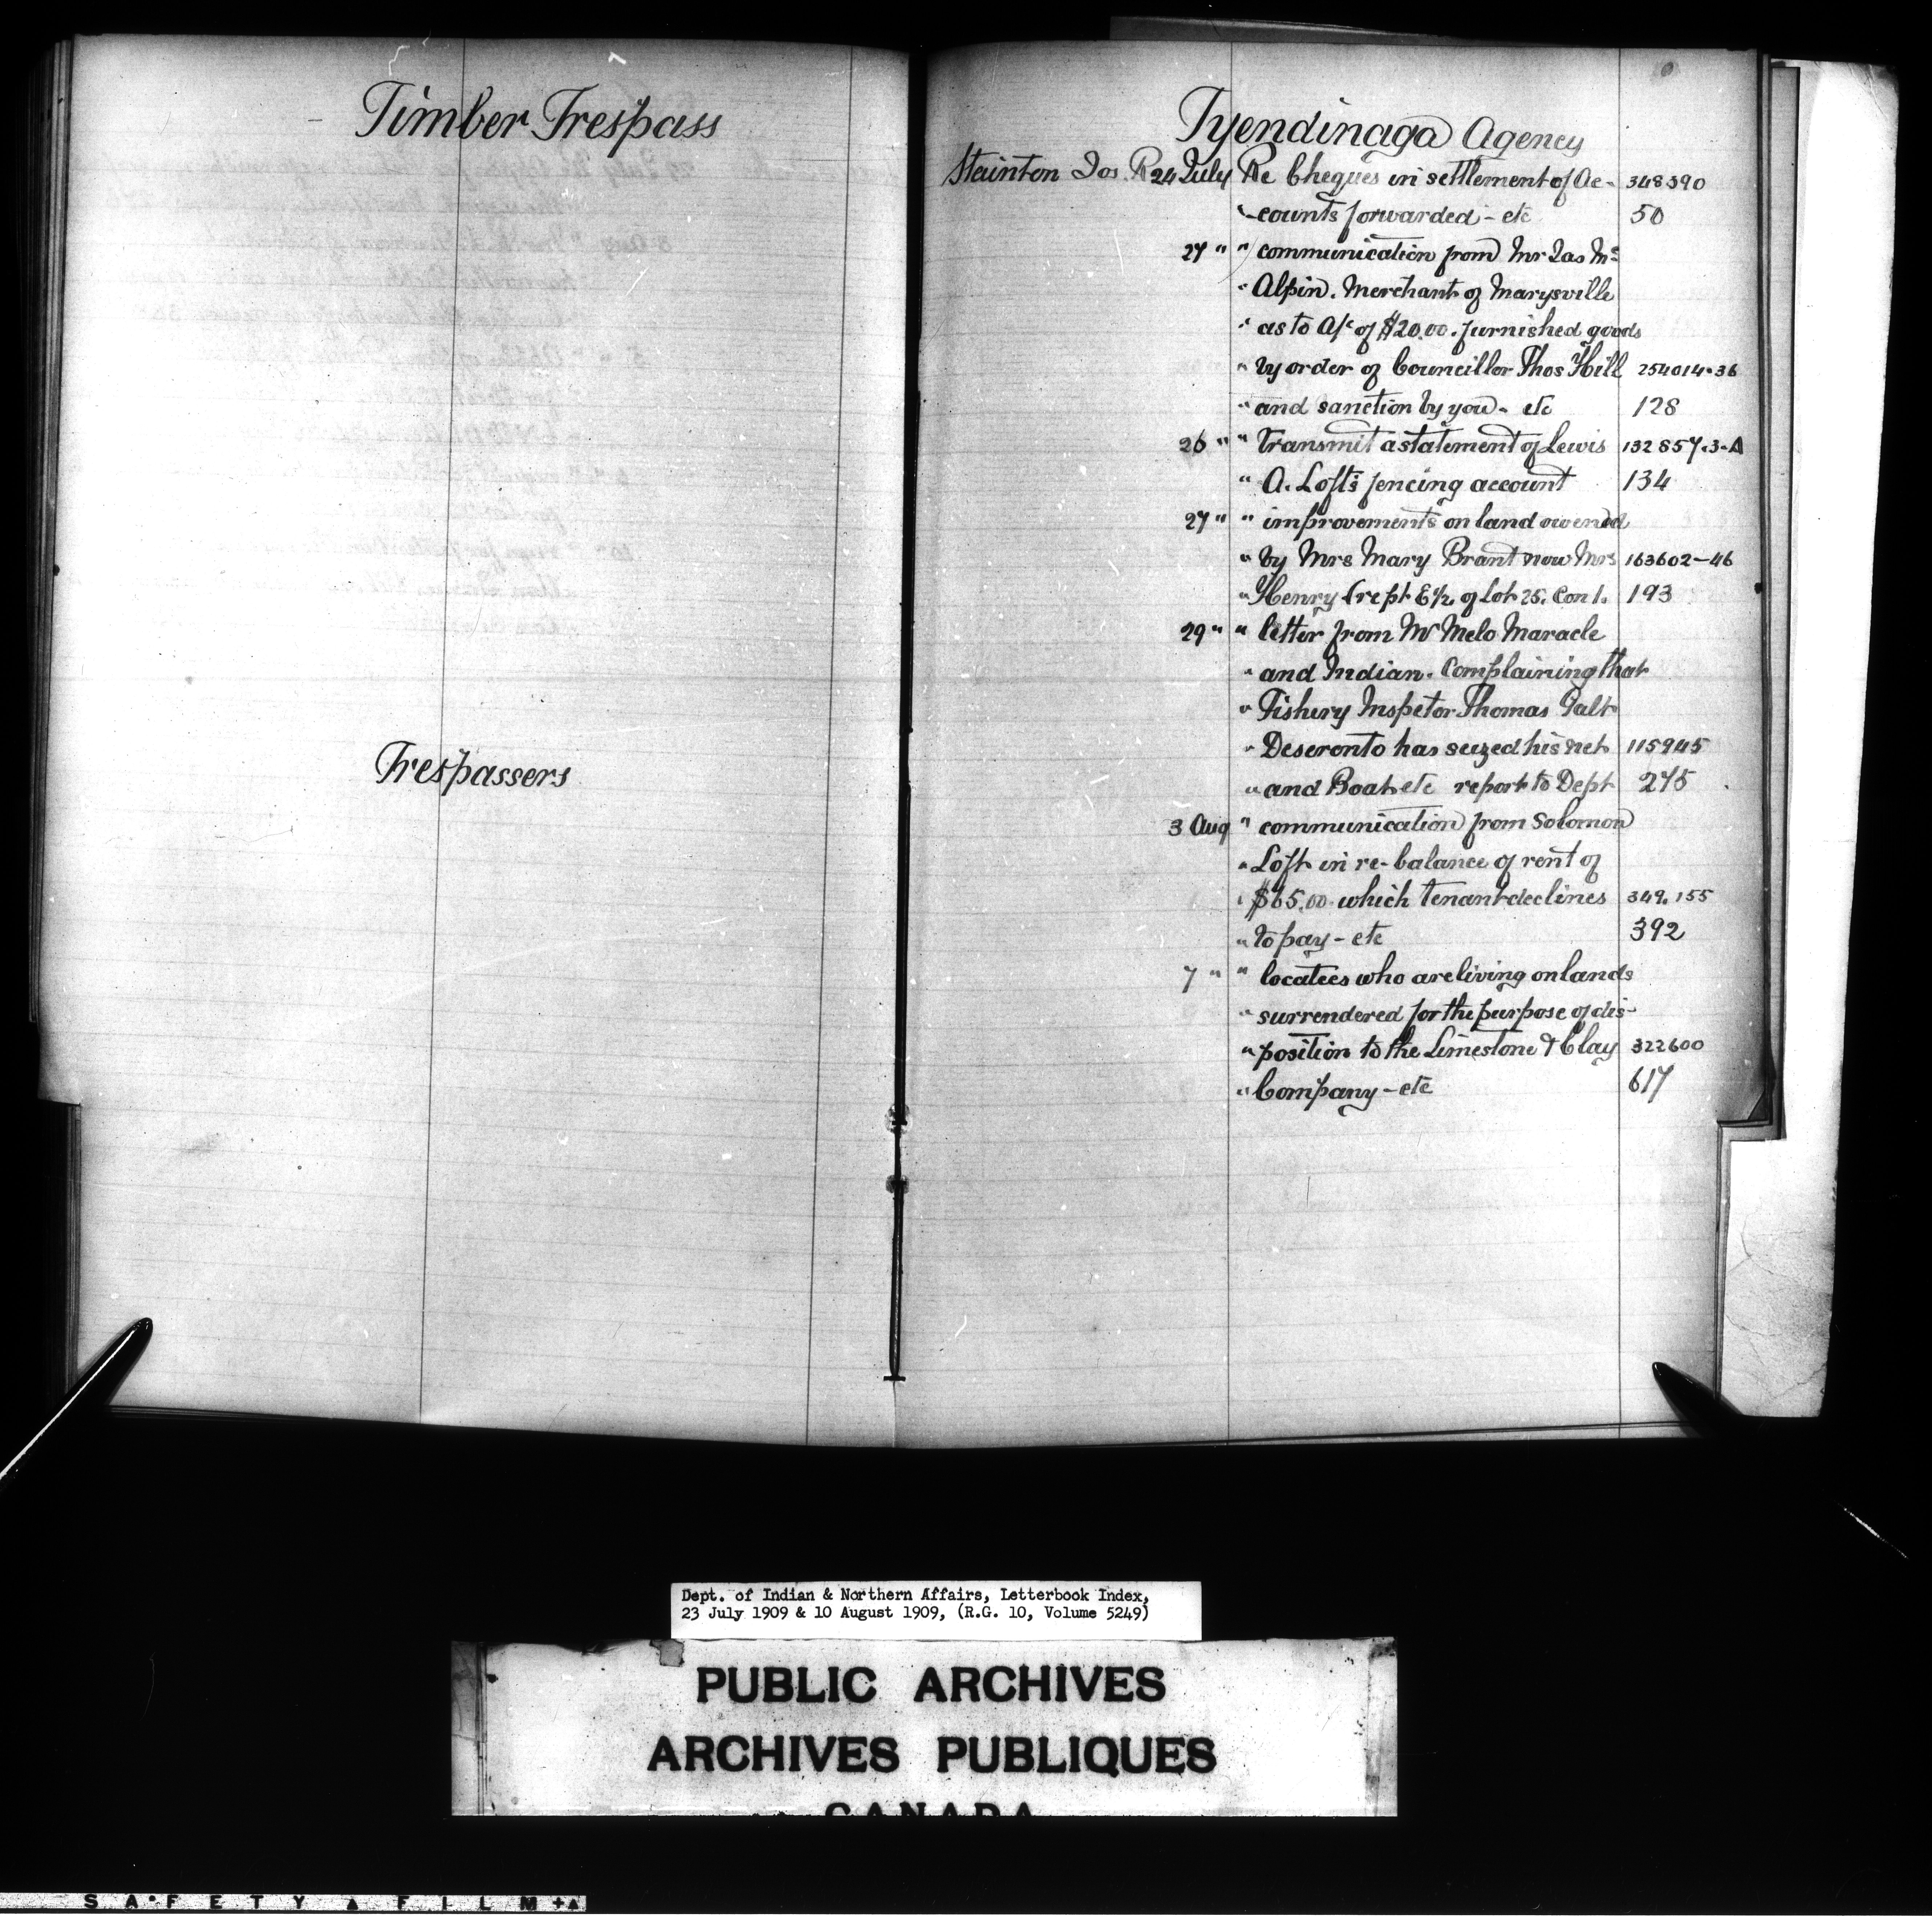 Timber Trespass
Trespassers
Tyendinaga Agency
Stainton Jos. R 24 July Re Cheques in settlement of Ac- 348390
" counts forwarded - etc 50
27 " " communication from Mr Jas Mc
" Alpin. Merchant of Marysville
" as to A/c of $20.00. furnished goods
" by order of Councillor Thos Hill 254014-36
" and sanction by you - etc 128
26 " " Transmit a statement of Lewis 132857.3-A
" A. Loft's fencing account 134
27 " " improvements on land owened
" by Mrs Mary Brant now Mrs 163602-46
" Henry (rept E½ of Lot 25. Con 1. 193
29 " " letter from Mr Melo Maracle
" and Indian. Complaining that
" Fishery Inspetor Thomas Galt
" Deseronto has seized his net 115945
" and Boat etc report to Dept 275
3 Aug " communication from Solomon
" Loft in re-balance of rent of
" $65.00 which tenant declines 349,155
" to pay - etc 392
7 " " locatees who are living on lands
" surrendered for the purpose of dis-
" position to the Limestone & Clay 322600
" Company - etc 617
Dept. of Indian & Northern Affairs, Letterbook Index,
23 July 1909 & 10 August 1909, (R.G. 10, Volume 5249)
PUBLIC ARCHIVES
ARCHIVES PUBLIQUES
CANADA
SAFETY FILM